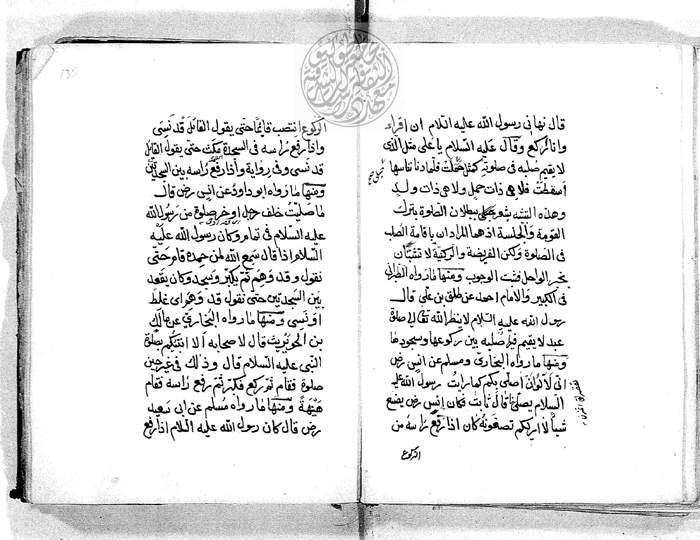 قال نهاني رسول الله عليه السلام ان اقراء
وانا راكع وقال عليه السلام يا على مثل الذى
لا يقيم صلبه فى صلوته كمثل حبلى حملت فلما دنا نفاسها
اسقطت فلا هى ذات حمل ولا هى ذات ولد
وهذه التشبيه يشعر ببطلان الصلوة بترك
القومة والجلسة اذ هما المراد ان باقامة الصلب
فى الصلوة ولكن الفريضة والركنية لا تثبتان
بخبر الواحد فثبت الوجوب ومنها ما رواه الطبرانى
فى الكبير والامام احمد عن طلق بن على قال
رسول الله عليه السلام لا ينظر الله تعالى الى صلوة
عبد لا يقيم فيها صلبه بين ركوعها وسجودها
ومنها ما رواه البخارى ومسلم عن انس رض
انى لا آلو ان اصلى بكم كما رايت رسول الله عليه
السلام يصلى بنا قال ثابت فكان انس رض يصنع
شيأ لا اراكم تصنعونه كان اذا رفع راسه من
الركوع
135
الركوع انتصب قايما حتى يقول القائل قد نسى
واذا رفع راسه فى السجدة مكث حتى يقول القائل
قد نسى وفى رواية واذا رفع راسه بين السجدتين
ومنها ما رواه ابو داود عن انس رض قال
ما صليت خلف رجل اوجز صلوة من رسول الله
عليه السلام فى تمام وكان رسول الله عليه
السلام اذا قال سمع الله لمن حمده قام حتى
نقول قد وهم ثم يكبر وسجد وكان يقعد
بين السجدتين حتى نقول قد وهم اى غلط
او نسى ومنها ما رواه البخارى عن مالك
بن الحويرث قال لاصحابه الا انبئكم بصلوة
النبى عليه السلام قال وذلك فى غير حين
صلوة فقام ثم ركع فكبر ثم رفع راسه فقام
هنيهة ومنها ما رواه مسلم عن ابى سعيد
رض قال كان رسول الله عليه السلام اذا رفع